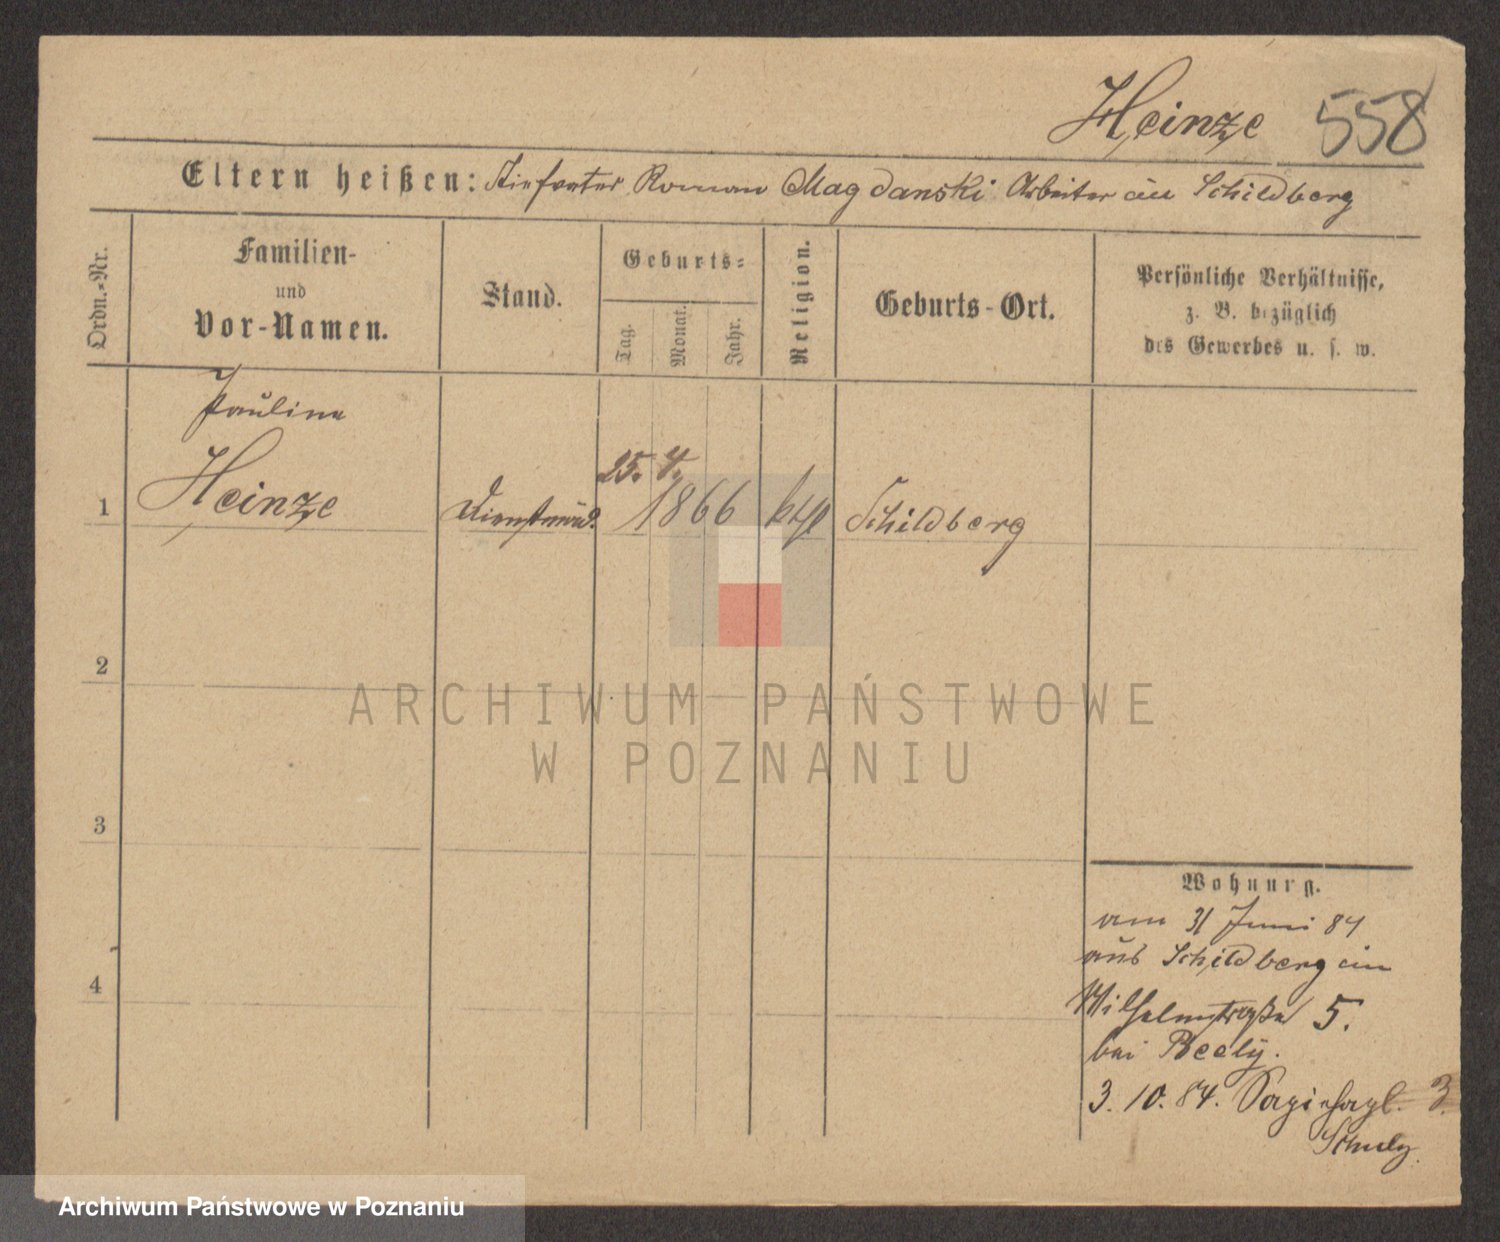 Heinze 558
Eltern heißen: Stiefvater Roman Magdanski Arbeiter in Schildberg
Ordn.-Nr.
Familien-
und
Vor-Namen.
Stand.
Geburts=
Tag.
Monat.
Jahr.
Religion.
Geburts-Ort.
Persönliche Verhältnisse,
z. B. bezüglich
des Gewerbes u. s. w.
Pauline
1 Heinze Dienstmäd. 25. 4. 1866 kth Schildberg
2
3
4
ARCHIWUM PAŃSTWOWE
W POZNANIU
Wohnung.
am 31 Juni 84
aus Schildberg in
Wilhelmstraße 5.
bei Beely.
3. 10. 84. 3.
Schulz.
Archiwum Państwowe w Poznaniu